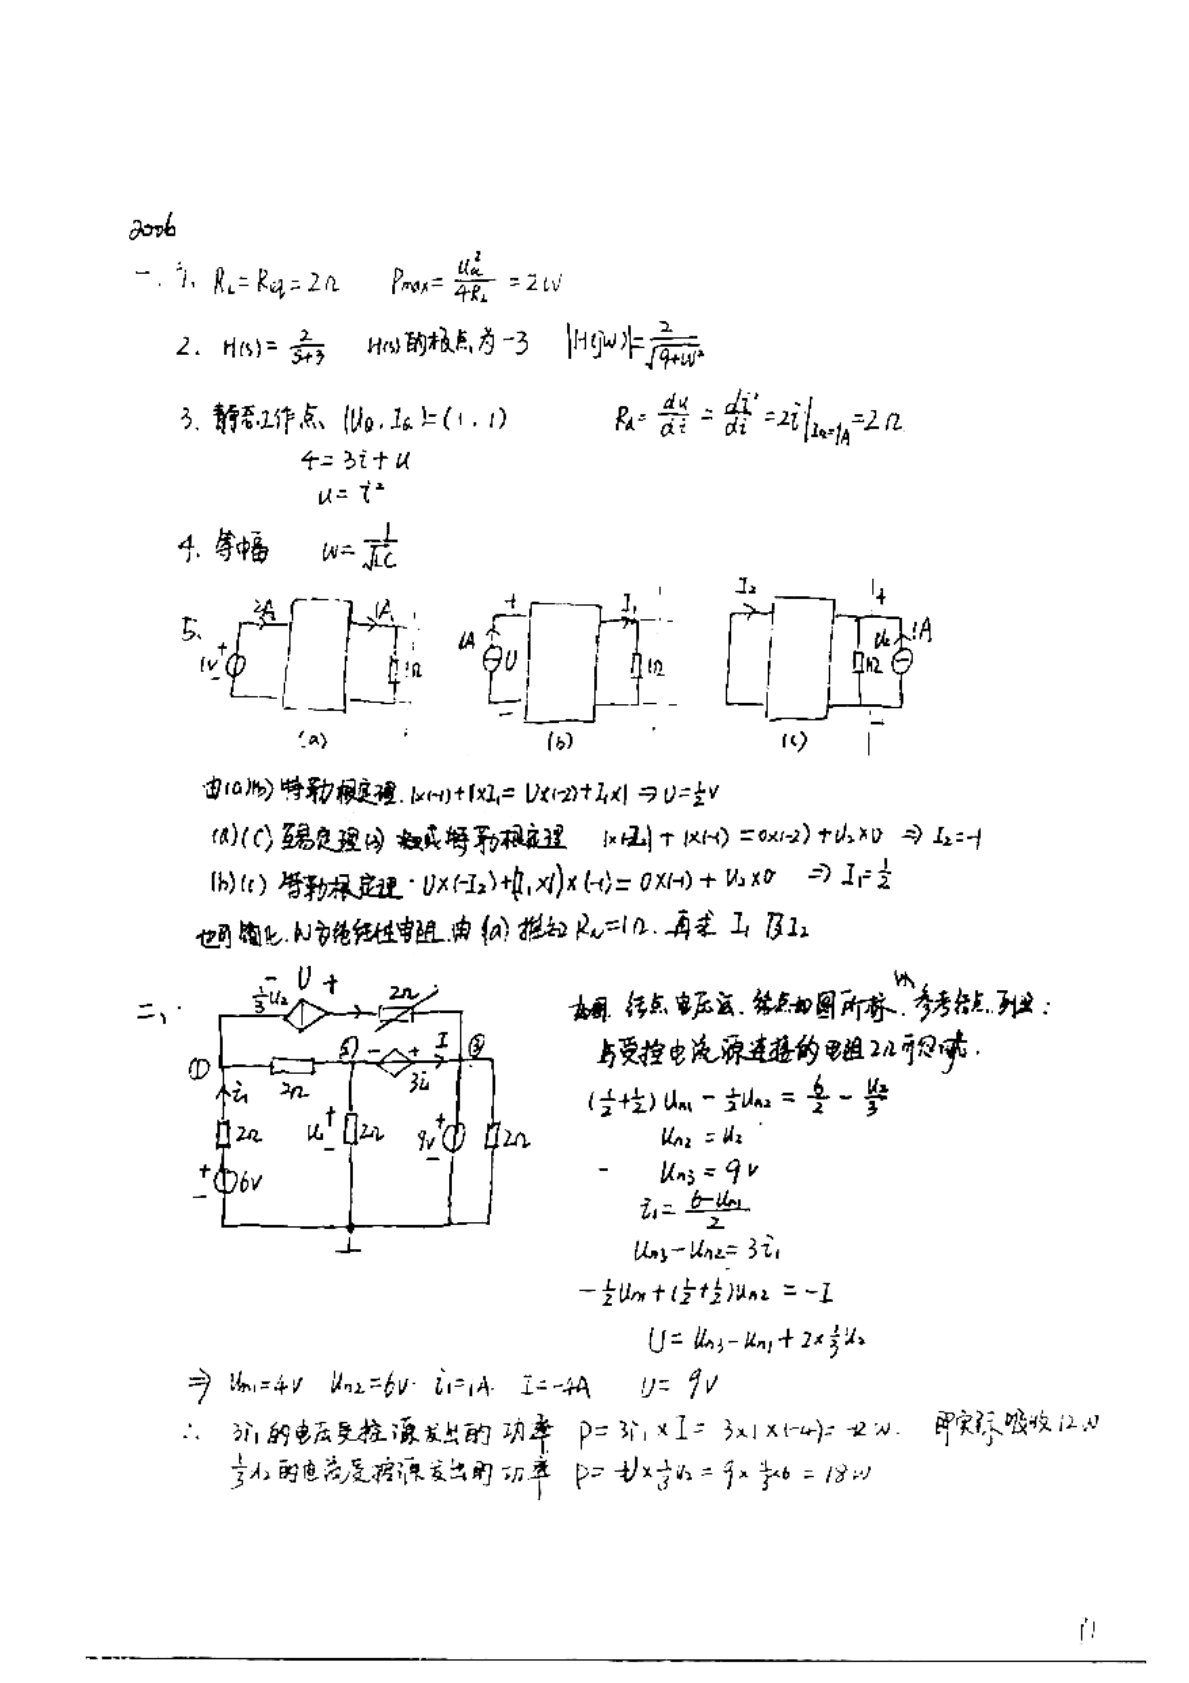 2006
一. 1. R_L = Req = 2Ω  Pmax = U_oc²/4R_L = 2W
2. H(s) = 2/(s+3)  H(s)的极点为-3  |H(jω)| = 2/√(9+ω²)
3. 静态工作点 (U_Q, I_Q) = (1, 1)  R_d = du/di = di²/di = 2i|I_Q=1A = 2Ω
4 = 3i + u
u = i²
4. 等幅  ω = 1/√LC
5. 2A 1A I₁ I₂ +
1V + - 1Ω 1A U + - 1Ω 1Ω U₂ 1A -
(a) (b) (c)
由(a)(b) 特勒根定理. 1×(-1)+1×I₁ = U×(-2)+I₁×1 ⇒ U=½V
(a)(c) 互易定理 特勒根定理  + 1×(-1) = 0×(-2) + U₂×0 ⇒ I₂=-1
(b)(c) 特勒根定理. U×(-I₂)+(I₁×1)×(-1) = 0×(-1) + U₂×0 ⇒ I₁=½
也可简化. N为纯线性电阻. 由(a) 推知 R_N=1Ω. 再求 I₁ 及I₂
二、
- U + ⅓U₂ 2Ω
① 2Ω ② - + 3i₁ I ③
i₁ 2Ω U₂ + - 2Ω 9V + - 2Ω
+ - 6V
结点电压法. 结点如图所标, 参考结点. 列出:
与受控电流源连接的电阻2Ω可忽略.
(½+½)Un1 - ½Un2 = 6/2 - U₂/3
Un2 = U₂
Un3 = 9V
i₁ = (6-Un1)/2
Un3 - Un2 = 3i₁
-½Un1 + (½+½)Un2 = -I
U = Un3 - Un1 + 2×⅓U₂
⇒ Un1=4V  Un2=6V  i₁=1A  I=-4A  U = 9V
∴ 3i₁的电压受控源发出的功率 P = 3i₁×I = 3×1×(-4) = -12W. 即实际吸收12W
⅓U₂的电流受控源发出的功率 P = U×⅓U₂ = 9×⅓×6 = 18W